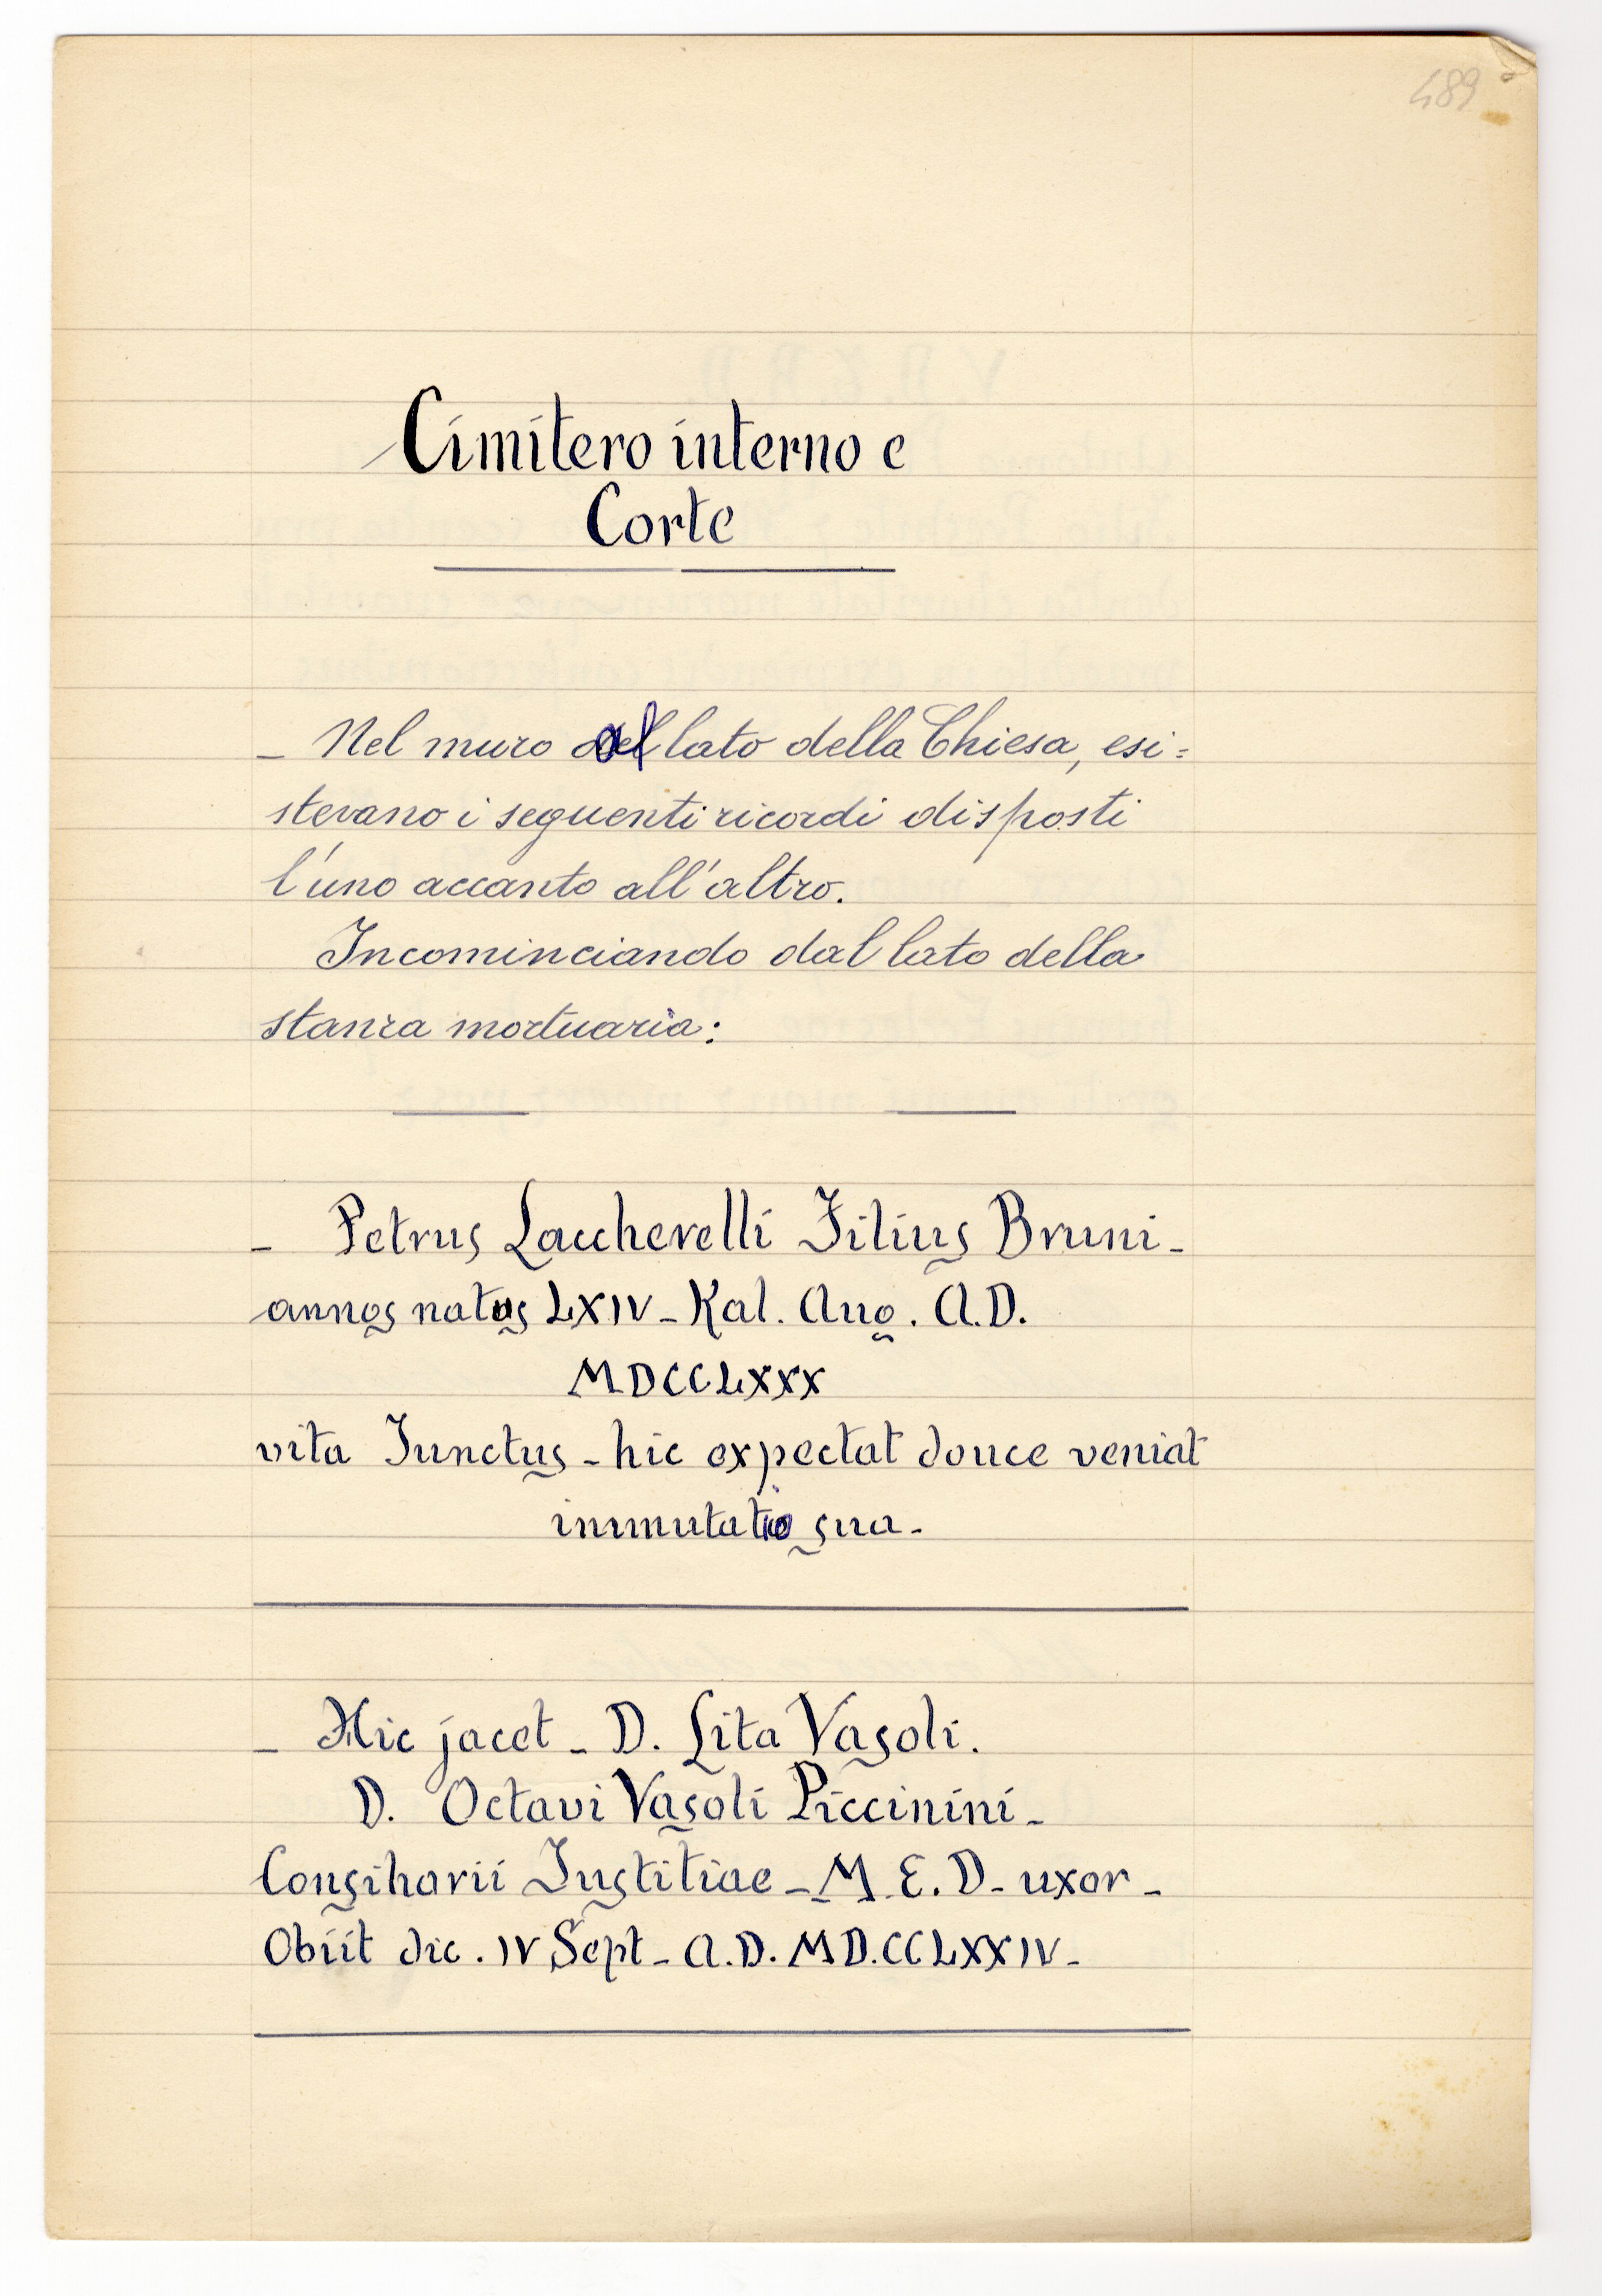 489
Cimitero interno e
Corte
- Nel muro al lato della Chiesa, esi=
stevano i seguenti ricordi disposti
l'uno accanto all'altro.
Incominciando dal lato della
stanza mortuaria:
- Petrus Laccherelli Filius Bruni -
annos natus LXIV - Kal. Aug. A.D.
MDCCLXXX
vita Functus - hic expectat donce veniat
immutatio sua -
- Hic jacet - D. Lita Vasoli.
D. Octavi Vasoli Piccinini -
Consiharii Justitiae - M.E.D - uxor -
Obiit die. IV Sept - A.D. MD.CCLXXIV -